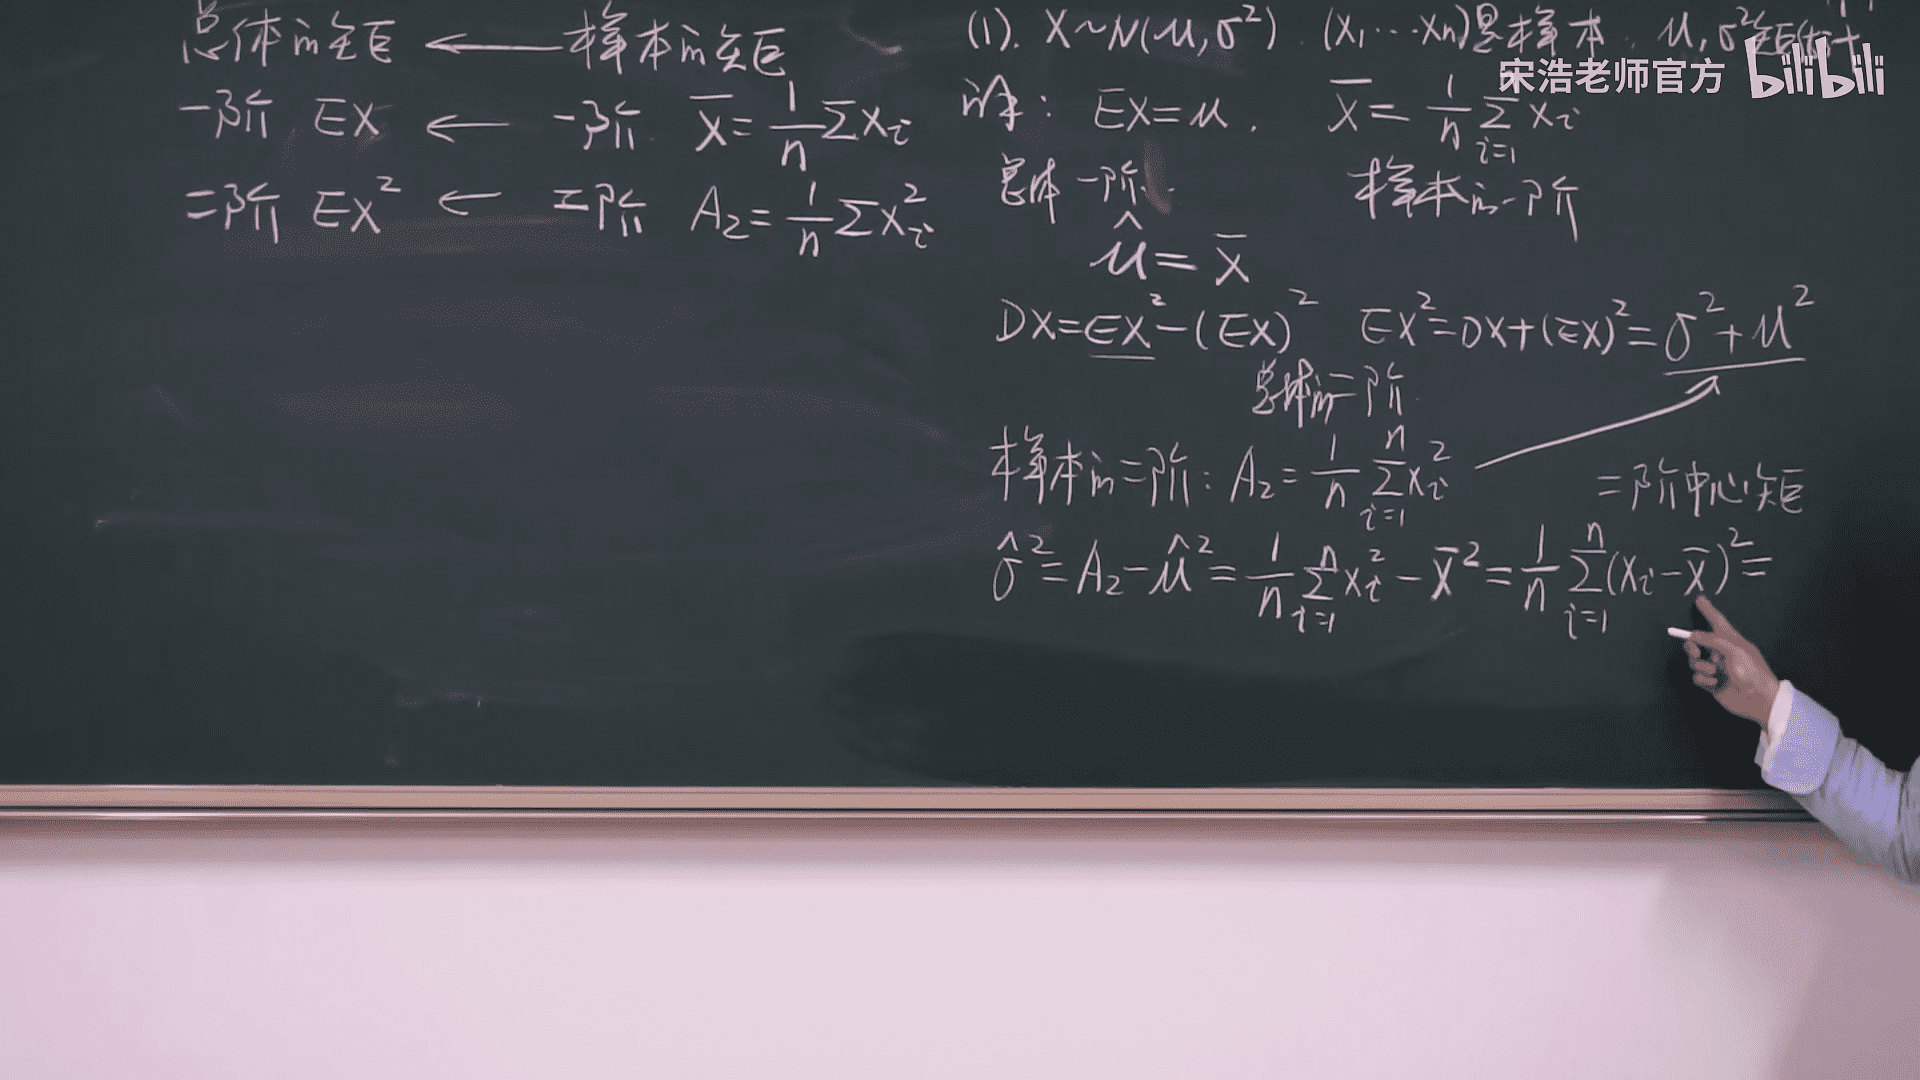 总体的矩 ← 样本的矩
一阶 EX ← 一阶 X̄=1/n ΣXᵢ
二阶 EX² ← 二阶 A₂=1/n ΣXᵢ²
(1). X~N(μ,σ²). (X₁…Xn)是样本. μ,σ²矩估计
宋浩老师官方 bilibili
解: EX=μ. X̄=1/n Σᵢ₌₁ Xᵢ
总体一阶. 样本的一阶
μ̂=X̄
DX=EX²-(EX)² EX²=DX+(EX)²=σ²+μ²
总体的二阶
样本的二阶: A₂=1/n Σᵢ₌₁ⁿ Xᵢ² 二阶中心矩
σ̂²=A₂-μ̂²=1/n Σᵢ₌₁ⁿ Xᵢ²-X̄²=1/n Σᵢ₌₁ⁿ(Xᵢ-X̄)²=